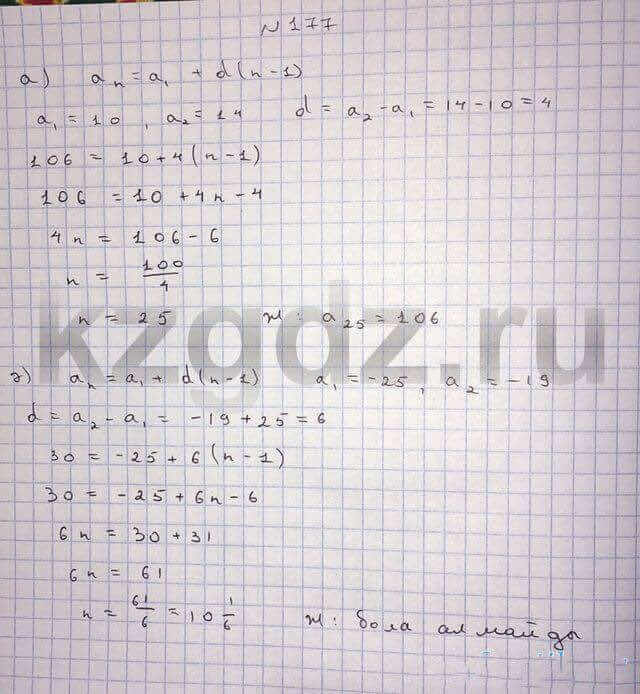 N 177
а) aₙ = a₁ + d(n-1)
a₁ = 10, a₂ = 14 d = a₂ - a₁ = 14 - 10 = 4
106 = 10 + 4(n-1)
106 = 10 + 4n - 4
4n = 106 - 6
n = 100/4
n = 25 ж: a₂₅ = 106
kzgdz.ru
ә) aₙ = a₁ + d(n-1) a₁ = -25, a₂ = -19
d = a₂ - a₁ = -19 + 25 = 6
30 = -25 + 6(n-1)
30 = -25 + 6n - 6
6n = 30 + 31
6n = 61
n = 61/6 = 10 1/6 ж: бола алмайды